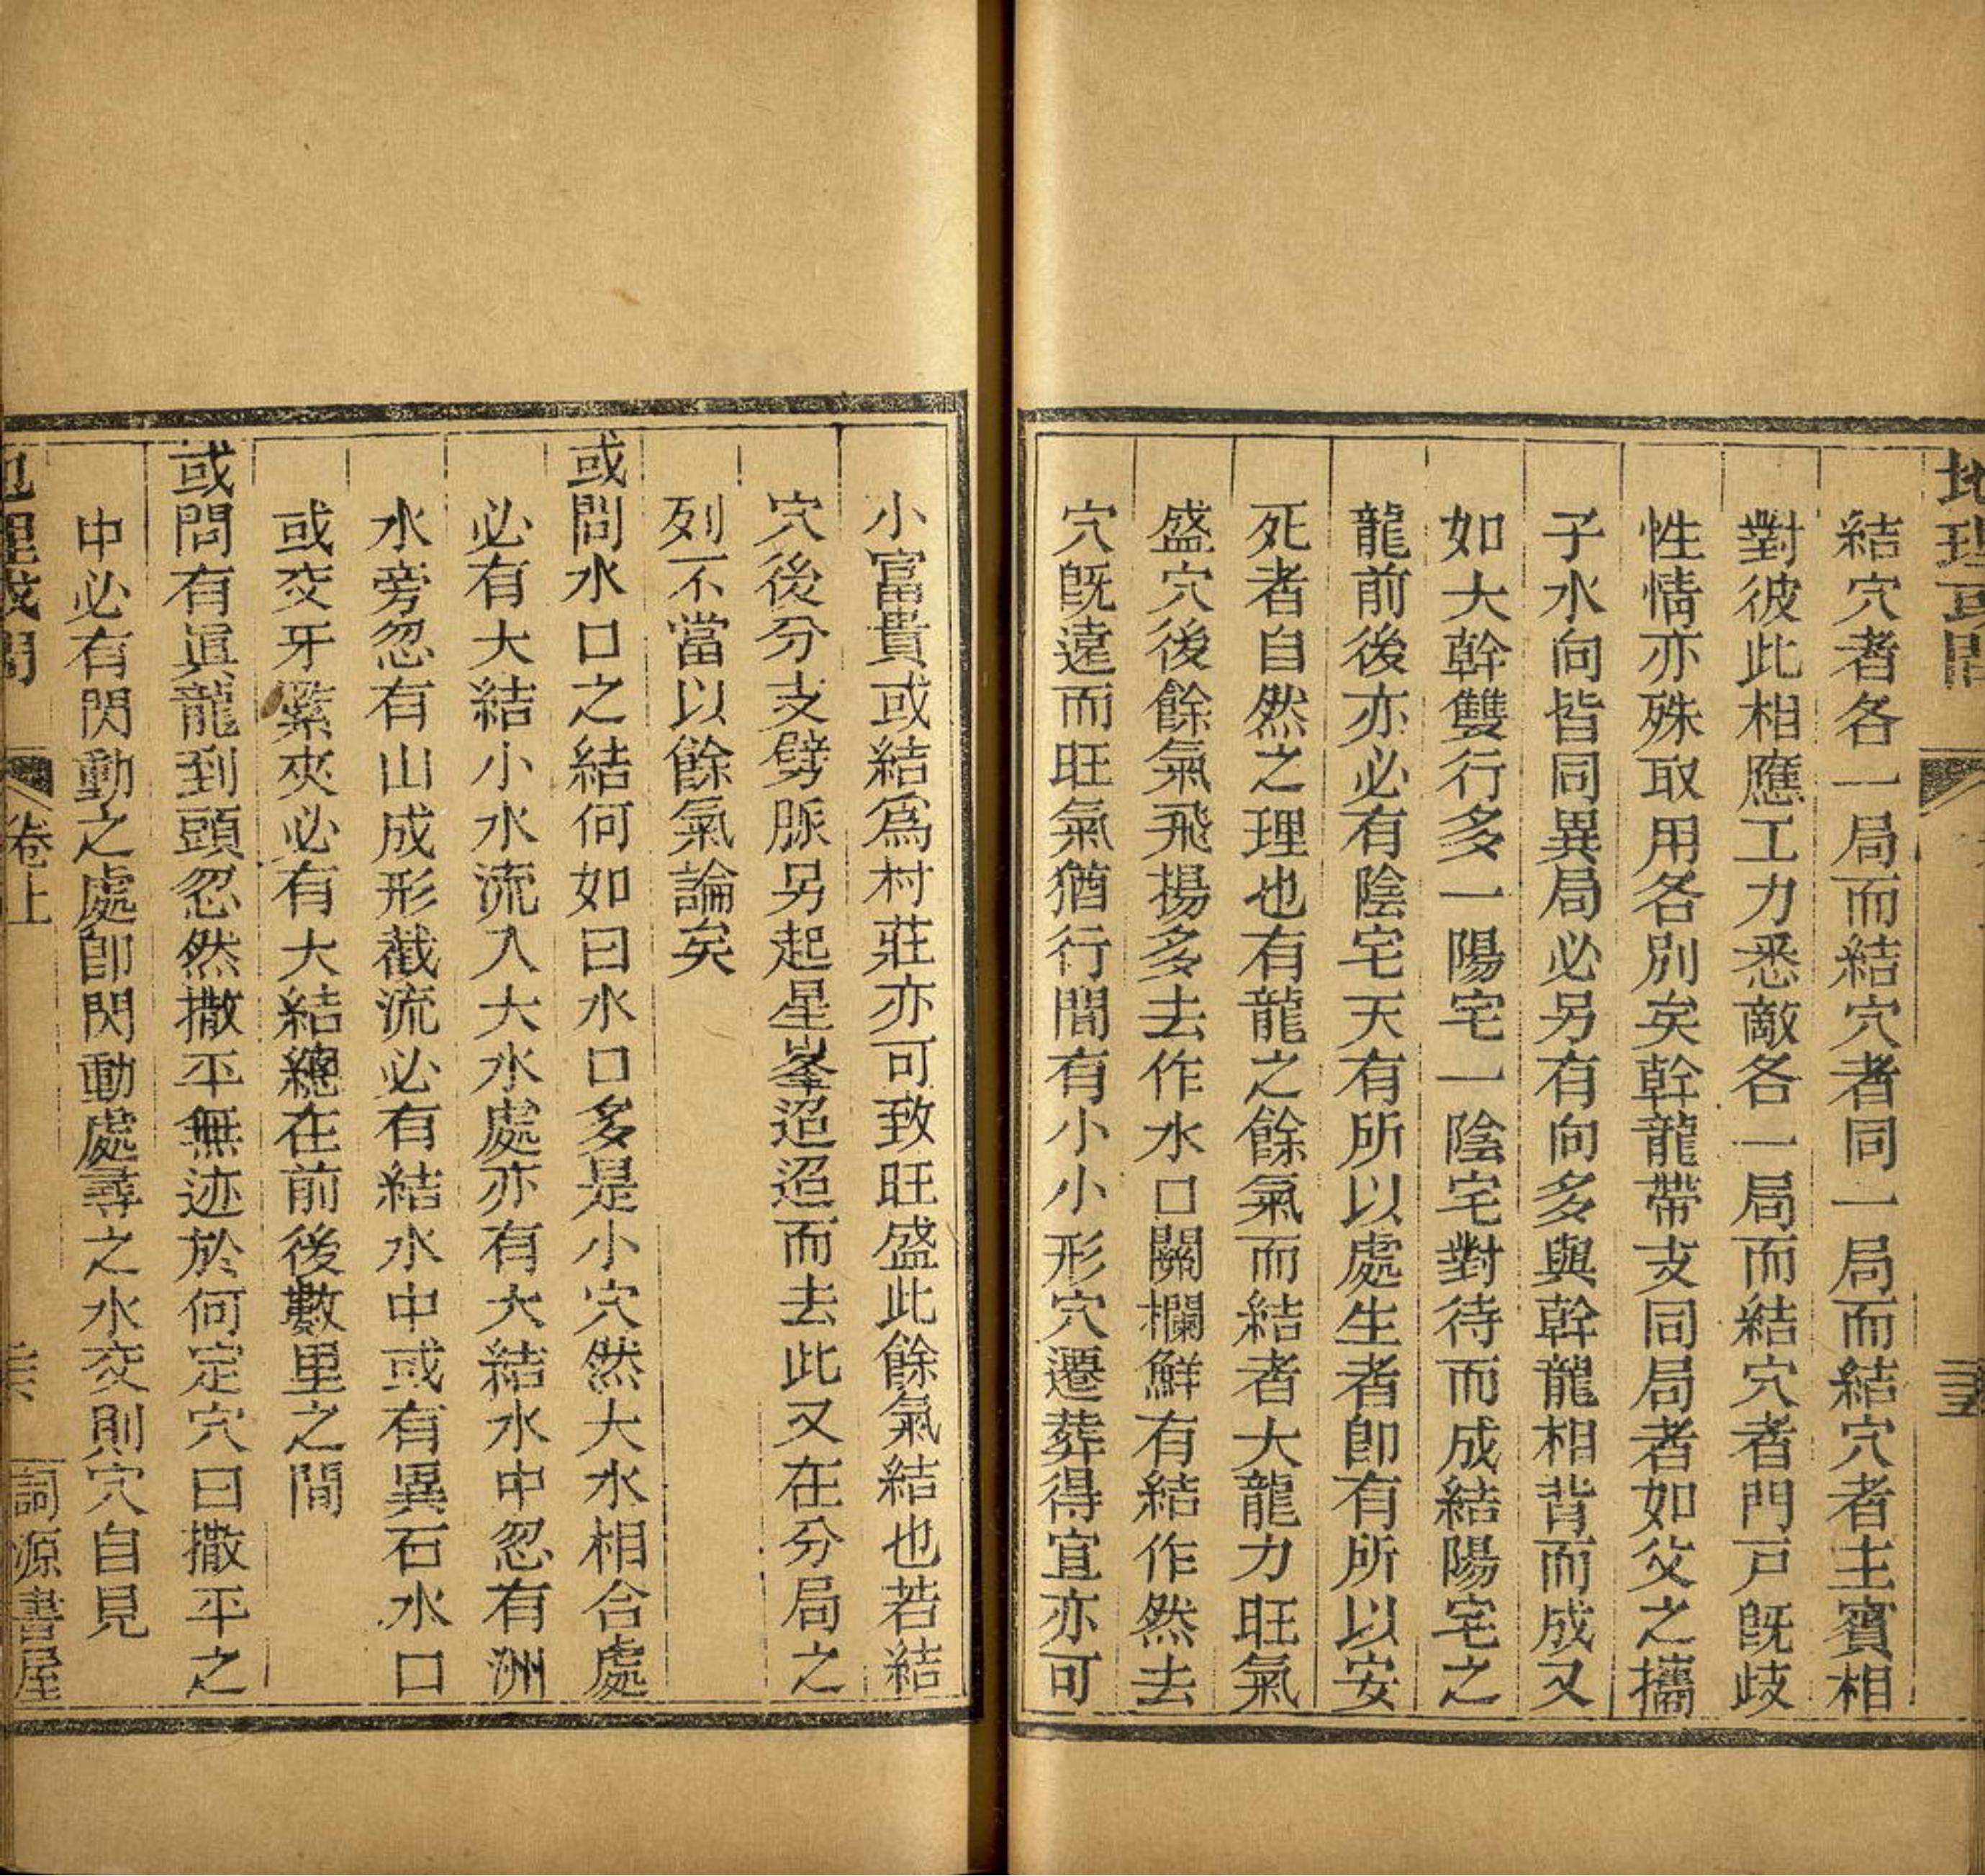 結穴者各一局而結穴者同一局而結穴者主賓相
對彼此相應工力悉敵各一局而結穴者門戸旣歧
性情亦殊取用各別矣幹龍帶支同局者如父之攜
子水向皆同異局必另有向多與幹龍相背而成又
如大幹雙行多一陽宅一陰宅對待而成結陽宅之
龍前後亦必有陰宅天有所以處生者卽有所以安
死者自然之理也有龍之餘氣而結者大龍力旺氣
盛穴後餘氣飛揚多去作水口關欄鮮有結作然去
穴旣遠而旺氣猶行間有小小形穴遷葬得宜亦可
小富貴或結爲村莊亦可致旺盛此餘氣結也若結
穴後分支劈脈另起星峯迢迢而去此又在分局之
列不當以餘氣論矣
或問水口之結何如曰水口多是小穴然大水相合處
必有大結小水流入大水處亦有大結水中忽有洲
水旁忽有山成形截流必有結水中或有異石水口
或交牙緊夾必有大結總在前後數里之間
或問有眞龍到頭忽然撒平無迹於何定穴曰撒平之
中必有閃動之處卽閃動處尋之水交則穴自見
卷上
詞源書屋